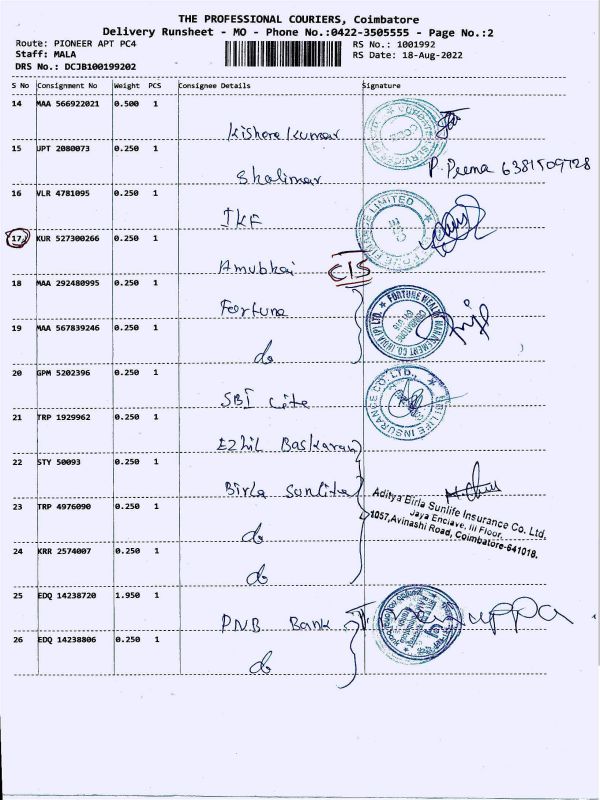 THE PROFESSIONAL COURIERS, Coimbatore
Delivery Runsheet - MO - Phone No.:0422-3505555 - Page No.:2
Route: PIONEER APT PC4 RS No.: 1001992
Staff: MALA RS Date: 18-Aug-2022
DRS No.: DCJB100199202
S No Consignment No Weight PCS Consignee Details Signature
14 MAA 566922021 0.500 1
Kishore kumar
15 UPT 2080073 0.250 1
P. Prema 6381509728
Shalimar
16 VLR 4781095 0.250 1
FINANCE LIMITED
IKF
17 KUR 527300266 0.250 1
Amubhai CIS
18 MAA 292480995 0.250 1
Fortune
FORTUNE HEALTH MANAGEMENT CO. INDIA (P) LTD.
COIMBATORE 641 018
19 MAA 567839246 0.250 1
do
20 GPM 5202396 0.250 1
SBI Life
SBI LIFE INSURANCE CO. LTD.,
21 TRP 1929962 0.250 1
Ezhil Baskaran
22 STY 50093 0.250 1
Birla Sunlife
Aditya Birla Sunlife Insurance Co. Ltd.
Jaya Enclave, III Floor,
1057,Avinashi Road, Coimbatore-641018.
23 TRP 4976090 0.250 1
do
24 KRR 2574007 0.250 1
do
25 EDQ 14238720 1.950 1
PNB Bank
26 EDQ 14238806 0.250 1
do